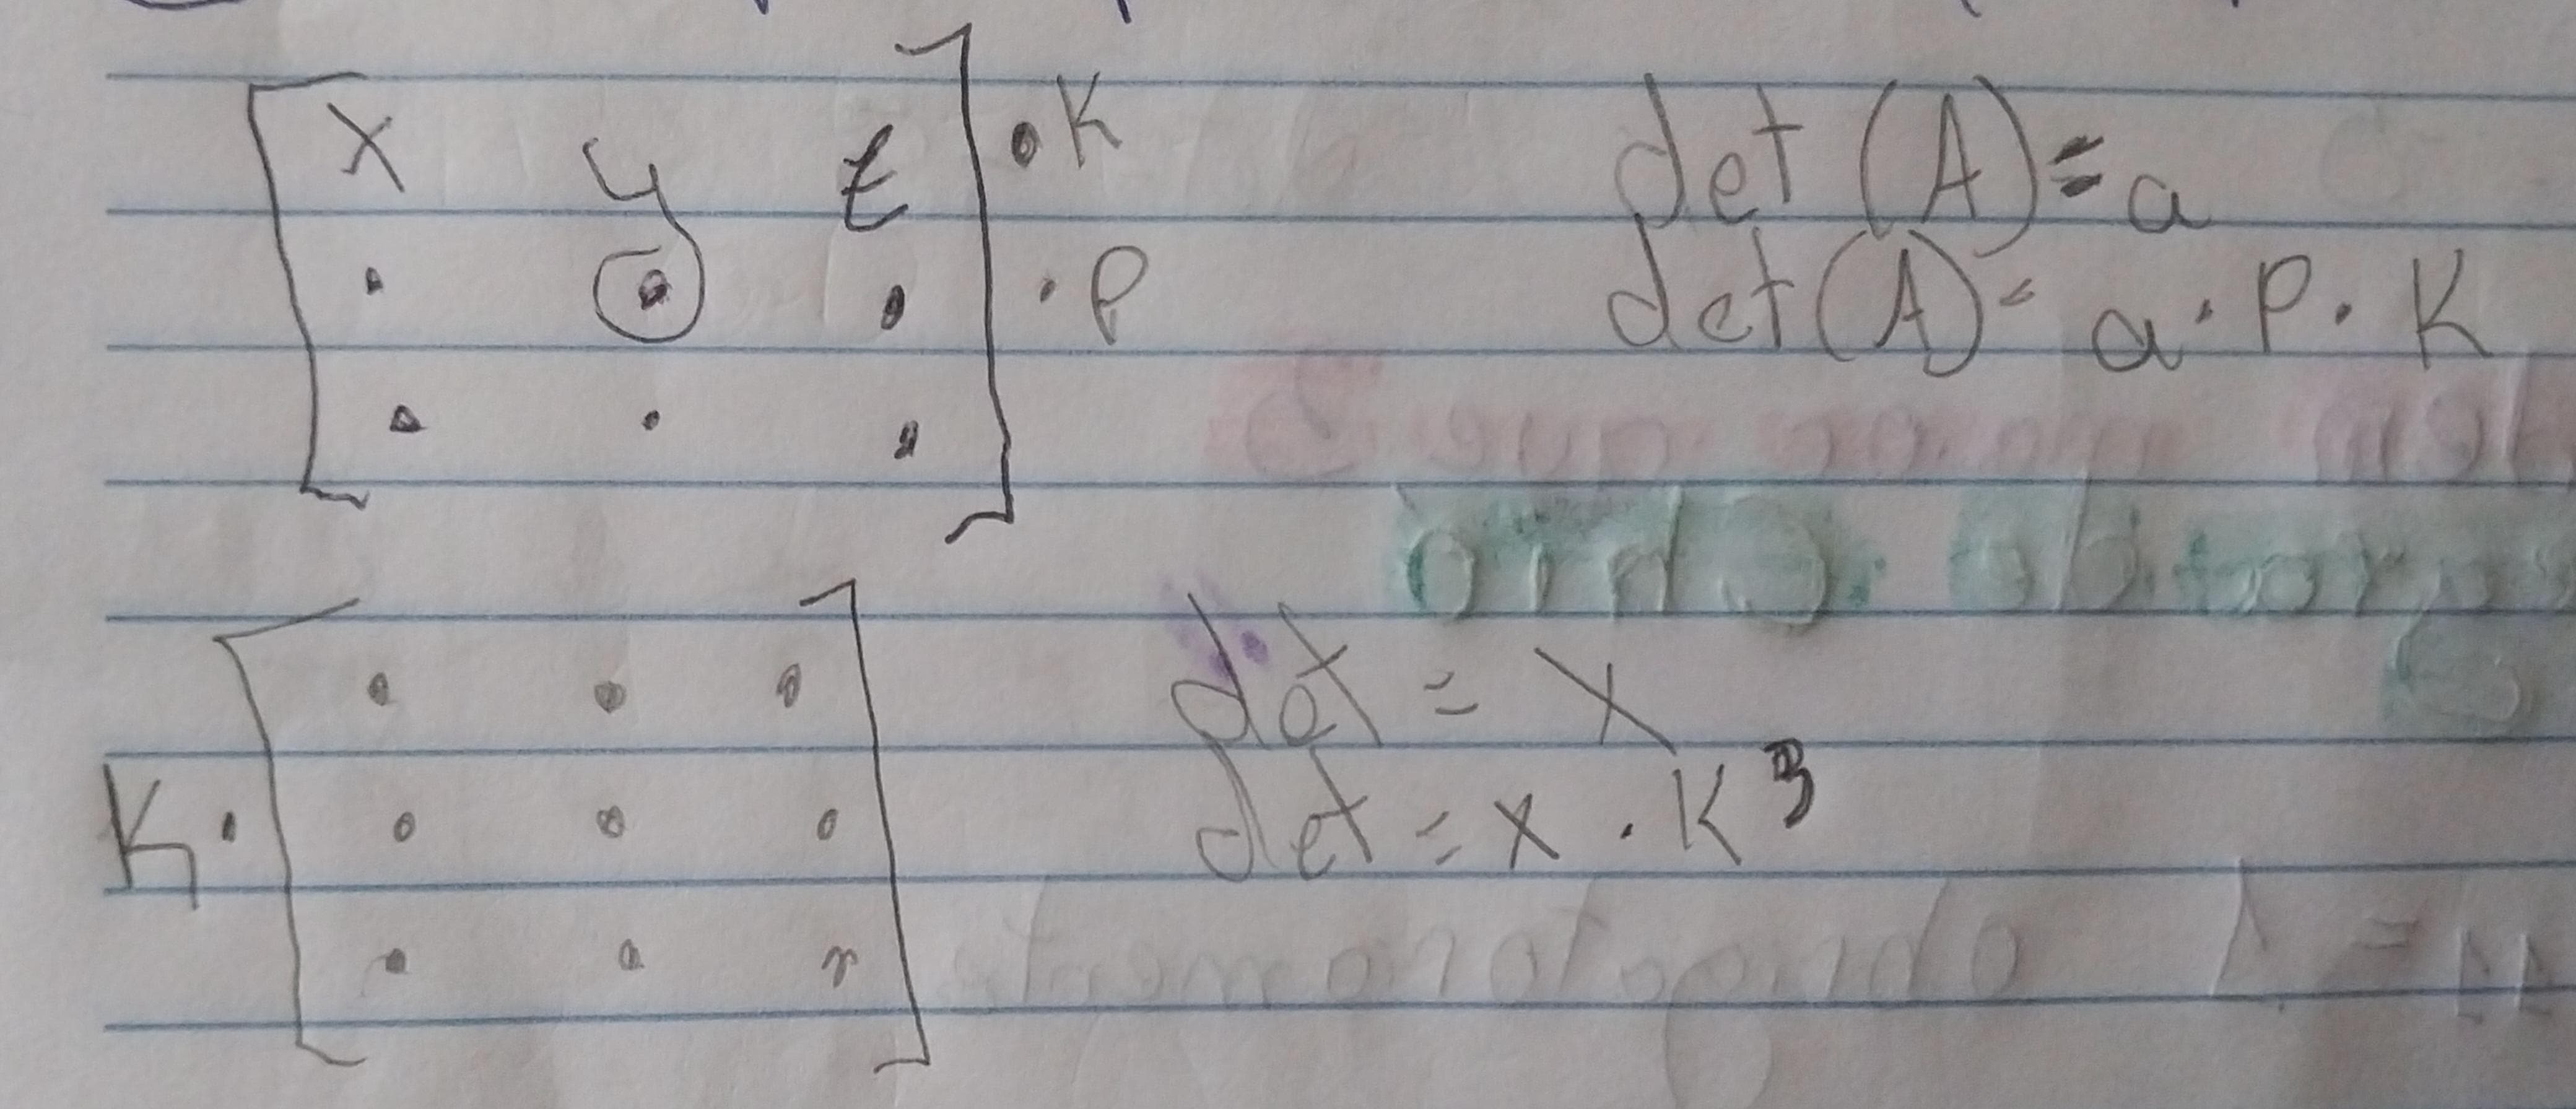 x y z · K
· · · · P
· · ·
det (A) = a
det (A) = a · P · K
K · · · ·
· · ·
· · ·
det = x
det = x · K³